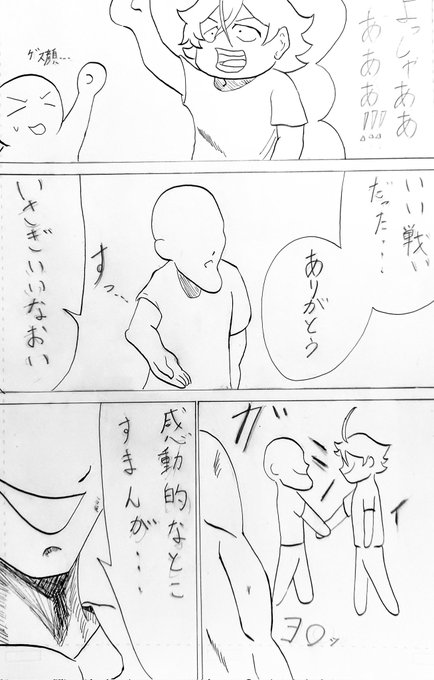 よっしゃああ
あああ!!!
ゲス顔…
いい戦い
だった…
ありがとう
すっ…
いさぎいいなおい
ガ
シィ
ヨロッ
感動的なとこ
すまんが…